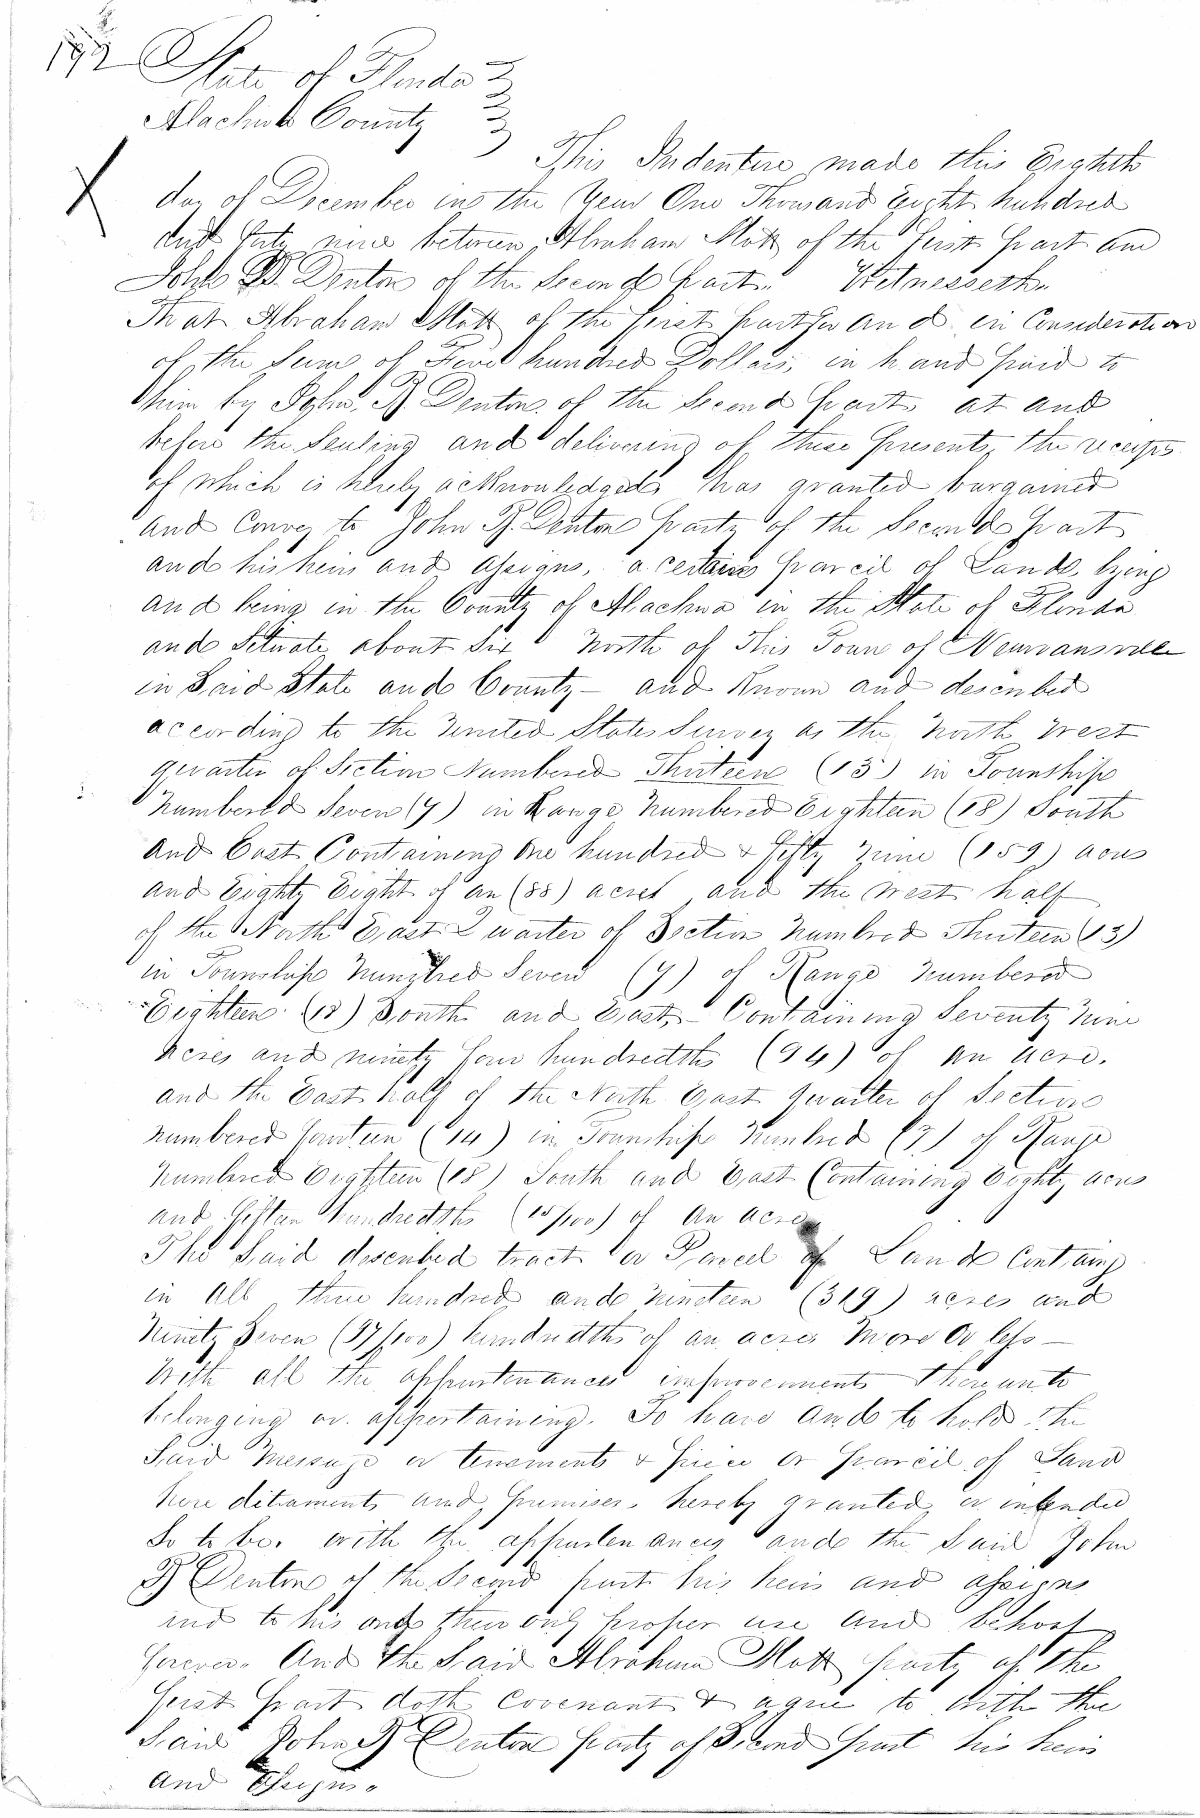 192 State of Florida
Alachua County
This Indenture made this Eighth
day of December in the Year One Thousand Eight hundred
and fifty nine between Abraham Mott of the first part and
John B. Denton of the Second part. Witnesseth.
That Abraham Mott of the first part for and in Consideration
of the Sum of Five hundred Dollars, in hand paid to
him by John B Denton of the Second part, at and
before the Sealing and delivering of these presents, the receipts
of which is hereby acknowledged, has granted bargained
and Convey to John B. Denton party of the Second part
and his heirs and assigns, a certain parcil of Land, lying
and being in the County of Alachua in the State of Florida
and Situate about Six North of This Town of Newnansville
in Said State and County - and Known and described
according to the United States Survey as the North West
quarter of Section Numbered Thirteen (13) in Township
Numbered Seven (7) in Range Numbered Eighteen (18) South
and East Containing One hundred & fifty nine (159) acres
and Eighty Eight of an (88) acres and the West half
of the North East Quarter of Section Numbred Thirteen (13)
in Township Numbred Seven (7) of Range numbered
Eighteen (18) South and East, - Containing Seventy nine
Acres and ninety four hundredths (94) of an acre.
and the East half of the North East quarter of Section
numbered fourteen (14) in Township Numbred (7) of Range
Numbred Eighteen (18) South and East Containing Eighty acres
and fifteen hundredths (15/100) of an acre
The Said described tract or Parcel of Land Containg
in all three hundred and nineteen (319) acres and
Ninety Seven (97/100) hundredths of an acre More Or less -
With all the appurtenances improvements thereunto
belonging or appertaining. To have and to hold the
Said Messuage or tenements & piece or parcil of Land
here ditaments and premises, hereby granted or intended
So to be. with the appurtenances and the Said John
B Denton of the Second part his heirs and assigns
and to his and their only proper use and behoof
forever. And the Said Abraham Mott party of the
first part doth Covenant & agree to with the
Said John B Denton party of Second part his heirs
and Assigns.